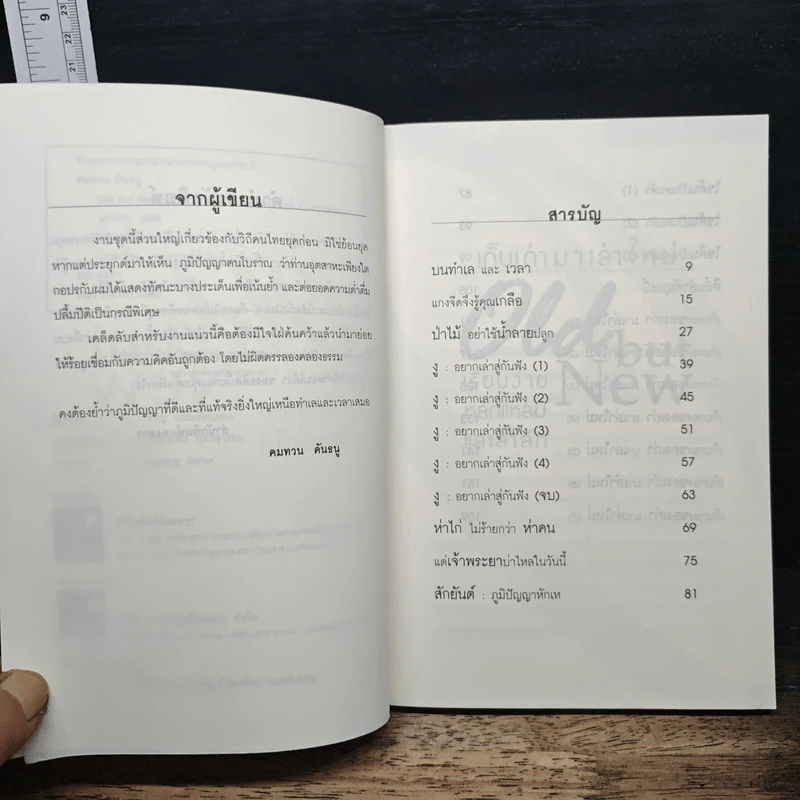 9
23
22
21
จากผู้เขียน
งานชุดนี้ส่วนใหญ่เกี่ยวข้องกับวิถีคนไทยยุคก่อน มิใช่ย้อนยุค
หากแต่ประยุกต์มาให้เห็น ภูมิปัญญาคนโบราณ ว่าท่านอุตสาหะเพียงใด
กอปรกับผมได้แสดงทัศนะบางประเด็นเพื่อเน้นย้ำ และต่อยอดความด่ำดื่ม
ปลื้มปีติเป็นกรณีพิเศษ
เคล็ดลับสำหรับงานแนวนี้คือต้องมีใจใฝ่ค้นคว้าแล้วนำมาย่อย
ให้ร้อยเชื่อมกับความคิดอันถูกต้อง โดยไม่ผิดครรลองคลองธรรม
คงต้องย้ำว่าภูมิปัญญาที่ดีและที่แท้จริงยิ่งใหญ่เหนือทำเลและเวลาเสมอ
คมทวน คันธนู
สารบัญ
บนทำเล และ เวลา 9
แกงจืดจึงรู้คุณเกลือ 15
ป่าไม้ อย่าใช้น้ำลายปลูก 27
งู : อยากเล่าสู่กันฟัง (1) 39
งู : อยากเล่าสู่กันฟัง (2) 45
งู : อยากเล่าสู่กันฟัง (3) 51
งู : อยากเล่าสู่กันฟัง (4) 57
งู : อยากเล่าสู่กันฟัง (จบ) 63
ห่าไก่ ไม่ร้ายกว่า ห่าคน 69
แด่เจ้าพระยาบ่าไหลในวันนี้ 75
สักยันต์ : ภูมิปัญญาหักเห 81
Old
but
New